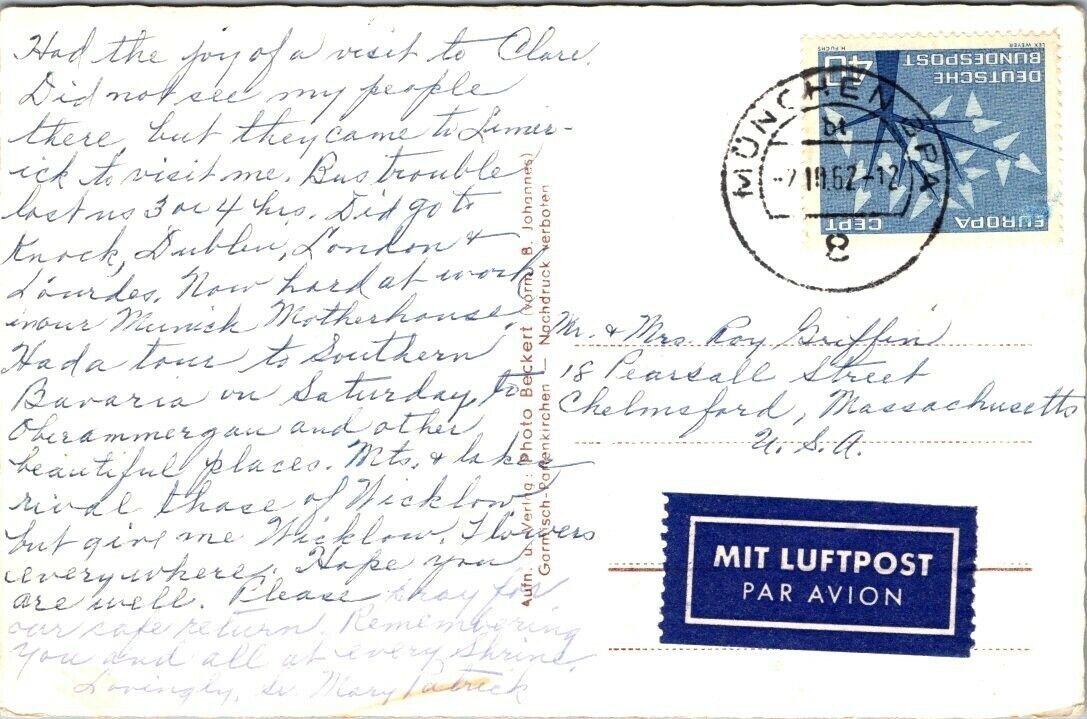 Had the joy of a visit to Clare.
Did not see my people
there, but they came to Limer-
ick to visit me. Bus trouble
lost us 3 or 4 hrs. Did go to
Knock, Dublin, London &
Lourdes. Now hard at work
in our Munich Motherhouse.
Had a tour to Southern
Bavaria on Saturday, to
Oberammergau and other
beautiful places. Mts. & lakes
rival those of Wicklow
but give me Wicklow. Flowers
everywhere. Hope you
are well. Please pray for
our safe return. Remembering
you and all at every shrine.
Lovingly, Sr. Mary Patrick
Aufn. u. Verlag: Photo Beckert (vorm. B. Johannes)
Garmisch-Partenkirchen — Nachdruck verboten
DEUTSCHE
BUNDESPOST
40
EUROPA
CEPT
H. FUCHS
LEX WEYER
MÜNCHEN 2PA
bt
8
Mr. & Mrs. Roy Griffin
18 Pearsall Street
Chelmsford, Massachusetts
U.S.A.
MIT LUFTPOST
PAR AVION